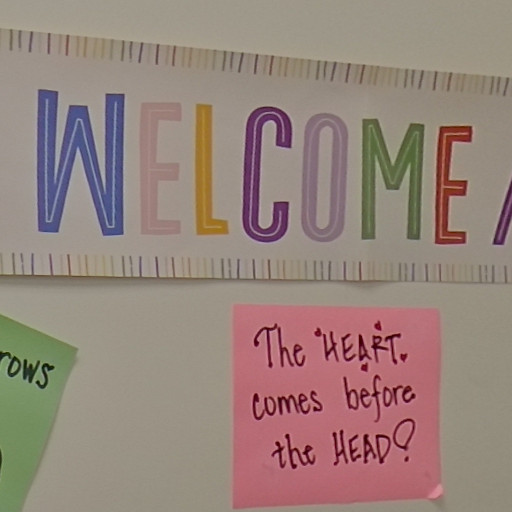 WELCOME
rows
The HEART
comes before
the HEAD?